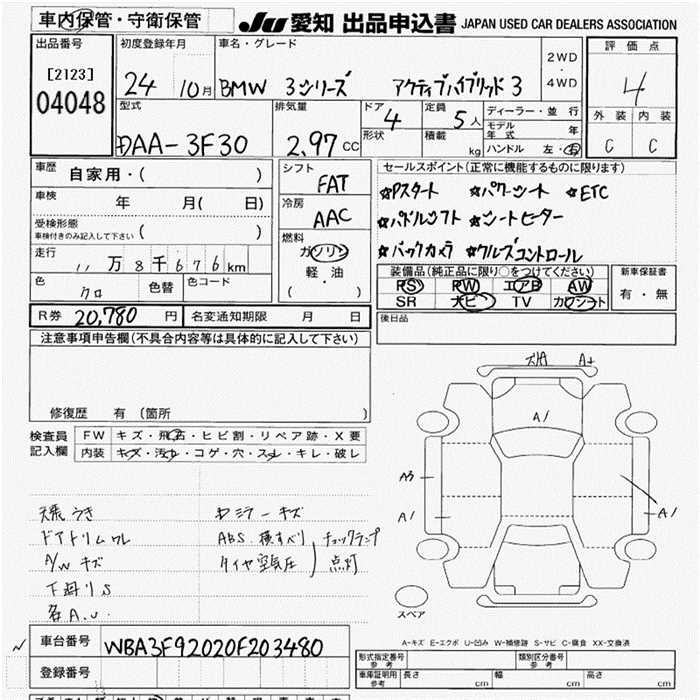 車内保管・守衛保管
JU 愛知 出品申込書 JAPAN USED CAR DEALERS ASSOCIATION
出品番号
[2123]
04048
初度登録年月
24 10月
車名・グレード
BMW 3シリーズ アクティブハイブリッド3
2WD
・
4WD
評価点
4
外装 内装
C C
型式
DAA-3F30
排気量
2.97 CC
ドア 4
形状
定員 5人
積載 kg
ディーラー・並行
モデル年式 年
ハンドル 左・右
車歴
自家用・( )
車検 年 月( 日)
受検形態
車検付きのみ記入して下さい ( )
走行
11万8千676km
色 クロ
色替
色コード
シフト
FAT
冷房
AAC
燃料
ガソリン
軽・油
( )
セールスポイント(正常に機能するものに限ります)
☆Pスタート ☆パワーシート ☆ETC
☆パドルシフト ☆シートヒーター
☆バックカメラ ☆クルーズコントロール
装備品(純正品に限り○をつけてください)
PS PW エアB AW
SR ナビ TV カワシート
新車保証書
有・無
R券 20,780 円
名変通知期限 月 日
後日品
注意事項申告欄(不具合内容等は具体的に記入して下さい)
修復歴 有 (箇所 )
検査員
記入欄
FW キズ・飛石・ヒビ割・リペア跡・X要
内装 キズ・汚れ・コゲ・穴・スレ・キレ・破レ
天張うき
ドアトリムワレ
A/Wキズ
下廻りS
各A.U.
ミラーキズ
ABS 横すべり
タイヤ空気圧
チェックランプ
点灯
ズリA A+
A1
A3
A1
A1
スペア
A-キズ E-エクボ U-凹み W-補修跡 S-サビ C-腐食 XX-交換済
車台番号 WBA3F92020F203480
登録番号
形式指定番号
参考
類別区分番号
参考
車庫証明用
参考
長さ cm 幅 cm 高さ cm